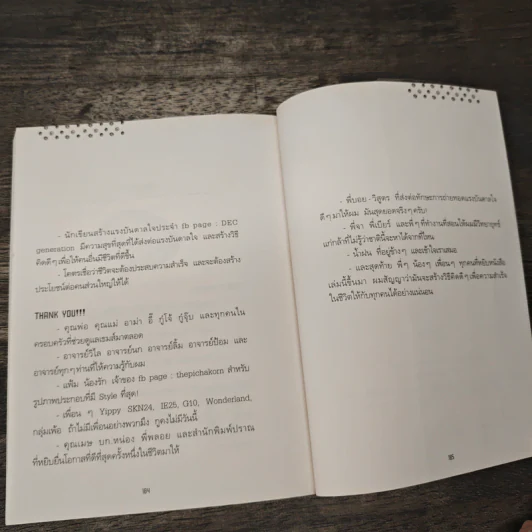 - นักเขียนสร้างแรงบันดาลใจประจำ fb page : DEC
generation มีความสุขที่สุดที่ได้ส่งต่อแรงบันดาลใจ และสร้างวิธี
คิดดีๆเพื่อให้คนอื่นมีชีวิตที่ดีขึ้น
- โคตรเชื่อว่าชีวิตจะต้องประสบความสำเร็จ และจะต้องสร้าง
ประโยชน์ต่อคนส่วนใหญ่ให้ได้
THANK YOU!!!
- คุณพ่อ คุณแม่ อาม่า อี๊ กู๋โจ้ กู๋จุ๊บ และทุกคนใน
ครอบครัวที่ช่วยดูแลเชมส์มาตลอด
- อาจารย์วิไล อาจารย์นก อาจารย์ติ๋ม อาจารย์ป้อม และ
อาจารย์ทุกๆท่านที่ให้ความรู้กับผม
- แพ้ม น้องรัก เจ้าของ fb page : thepichakorn สำหรับ
รูปภาพประกอบที่มี Style ที่สุด!
- เพื่อน ๆ Yippy SKN24, IE25, G10, Wonderland,
กลุ่มเพ้อ ถ้าไม่มีเพื่อนอย่างพวกมึง กูคงไม่มีวันนี้
- คุณเมษ บก.หน่อง พี่พลอย และสำนักพิมพ์ปราณ
ที่หยิบยื่นโอกาสที่ดีที่สุดครั้งหนึ่งในชีวิตมาให้
184
- พี่บอย วิสูตร ที่ส่งต่อทักษะการถ่ายทอดแรงบันดาลใจ
ดีๆมาให้ผม มันสุดยอดจริงๆครับ!
- พี่จา พี่เบียร์ และพี่ๆที่ทำงานที่สอนให้ผมมีวิทยายุทธ์
แก่กล้าที่ไม่รู้ว่าชาตินี้จะหาได้จากที่ไหน
- น้ำฝน ที่อยู่ข้างๆ และเข้าใจเราเสมอ
- และสุดท้าย พี่ๆ น้องๆ เพื่อนๆ ทุกคนที่หยิบหนังสือ
เล่มนี้ขึ้นมา ผมสัญญาว่ามันจะสร้างวิธีคิดดีๆเพื่อความสำเร็จ
ในชีวิตให้กับทุกคนได้อย่างแน่นอน
185